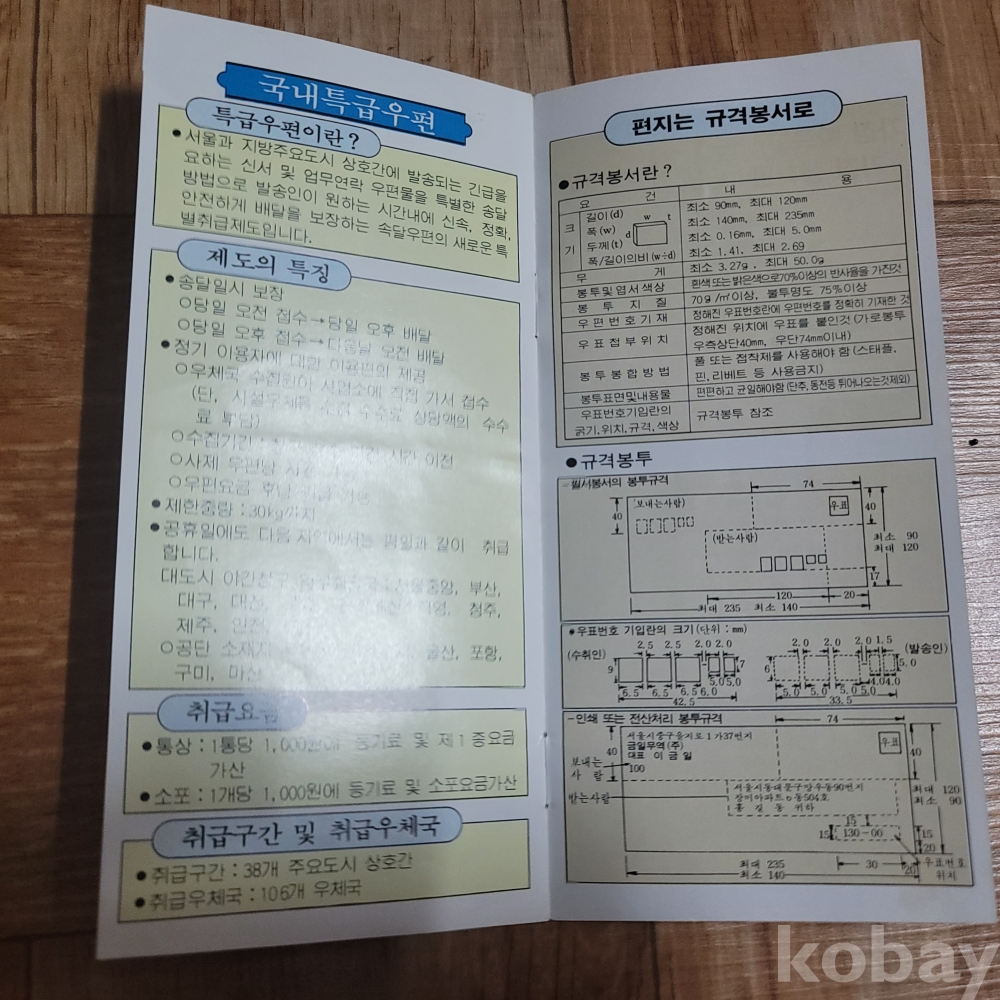 국내특급우편
특급우편이란?
●서울과 지방주요도시 상호간에 발송되는 긴급을
요하는 신서 및 업무연락 우편물을 특별한 송달
방법으로 발송인이 원하는 시간내에 신속, 정확,
안전하게 배달을 보장하는 속달우편의 새로운 특
별취급제도입니다.
제도의 특징
●송달일시 보장
○당일 오전 접수→당일 오후 배달
○당일 오후 접수→다음날 오전 배달
●정기 이용자에 대한 이용편의 제공
○우체국 수집원이 사업소에 직접 가서 접수
(단, 상당액의 수수
료
○수집기간 : 시간 이전
○사제 우편낭
○우편요금
●제한중량 : 30kg까지
●공휴일에도 다음 지역에서는 평일과 같이 취급
합니다.
서울중앙, 부산,
대구, 대전, 청주,
제주, 인천
○공단 소재지 울산, 포항,
구미, 마산
취급요금
●통상 : 1통당 1,000원에 등기료 및 제1종요금
가산
●소포 : 1개당 1,000원에 등기료 및 소포요금가산
취급구간 및 취급우체국
●취급구간 : 38개 주요도시 상호간
●취급우체국 : 106개 우체국
편지는 규격봉서로
●규격봉서란?
요 건 내 용
크기
길이(d) 최소 90mm, 최대 120mm
폭(w) 최소 140mm, 최대 235mm
두께(t) 최소 0.16mm, 최대 5.0mm
폭/길이의비(w÷d) 최소 1.41, 최대 2.69
w t
d
무 게 최소 3.27g, 최대 50.0g
봉투및엽서색상 흰색또는밝은색으로70%이상의 반사율을 가진것
봉 투 지 질 70g/㎡이상, 불투명도 75%이상
우편번호기재 정해진 우표번호란에 우편번호를 정확히 기재한 것
우표첩부위치 정해진 위치에 우표를 붙인것(가로봉투
우측상단40mm, 우단74mm이내)
봉투봉합방법 풀 또는 접착제를 사용해야 함(스태플,
핀, 리베트 등 사용금지)
봉투표면및내용물 편편하고 균일해야함(단추, 동전등 튀어나오는것제외)
우표번호기입란의
굵기, 위치, 규격, 색상 규격봉투 참조
●규격봉투
-필서봉서의 봉투규격
74
40
보내는사람)
우표
40
(받는사람)
최소 90
최대 120
17
120 20
최대 235 최소 140
●우표번호 기입란의 크기(단위 : mm)
(수취인) 2.5 2.5 2.0 2.0
9 7
5.0 5.0
6.5 6.5 6.5 6.0
42.5
2.0 2.0 2.0 1.5 (발송인)
6 5.0
4.0 4.0
5.0 5.0 5.0 5.0
33.5
-인쇄 또는 전산처리 봉투규격
74
40
서울시중구을지로 1가37번지
금일무역(주)
대표 이 금 일
100
우표
40
보내는
사 람
받는사람
서울시동대문구망우동90번지
장미아파트 동504호
홍 길 동 귀하
최대 120
최소 90
15
15 130-00 15
20
최대 235
최소 140
30 20
우표번호
위치
kobay